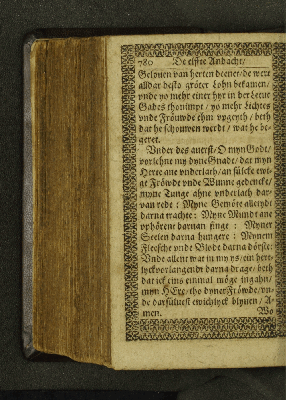 780 De elffte Andacht/
Gelouen van herten deenet/ de wert
alldar desto gröter Lohn bekamen/
vnde yo mehr einer hyr in der Leeue
Gades thonimpt/ yo mehr Lichtes
vnde Fröuwde ehm vpgeyth/ beth
dat he schouwen werdt/ wat he be-
geret.
Vnder des auerst/ O myn Godt/
vorlehne my dyne Gnade/ dat myn
Herte ane vnderlath/ an sülcke ewi-
ge Fröwde vnde Wunne gedencke/
myne Tunge ahne vnderlath dar-
van rede: Myne Gemöte alletydt
darna trachte: Myne Mundt ane
vphörent daruan singe: Myner
Seelen darna hungere: Mynem
Fleesche vnde Blode darna dörste:
Vnde allent wat in my ys/ ein hert-
lyck vorlangendt darna drage/ beth
dat ick eins einmal möge ingahn/
myn HEre/ tho dyner Fröwde/ vn-
de darsüluest ewichlyck blyuen/ A-
men.
Wo